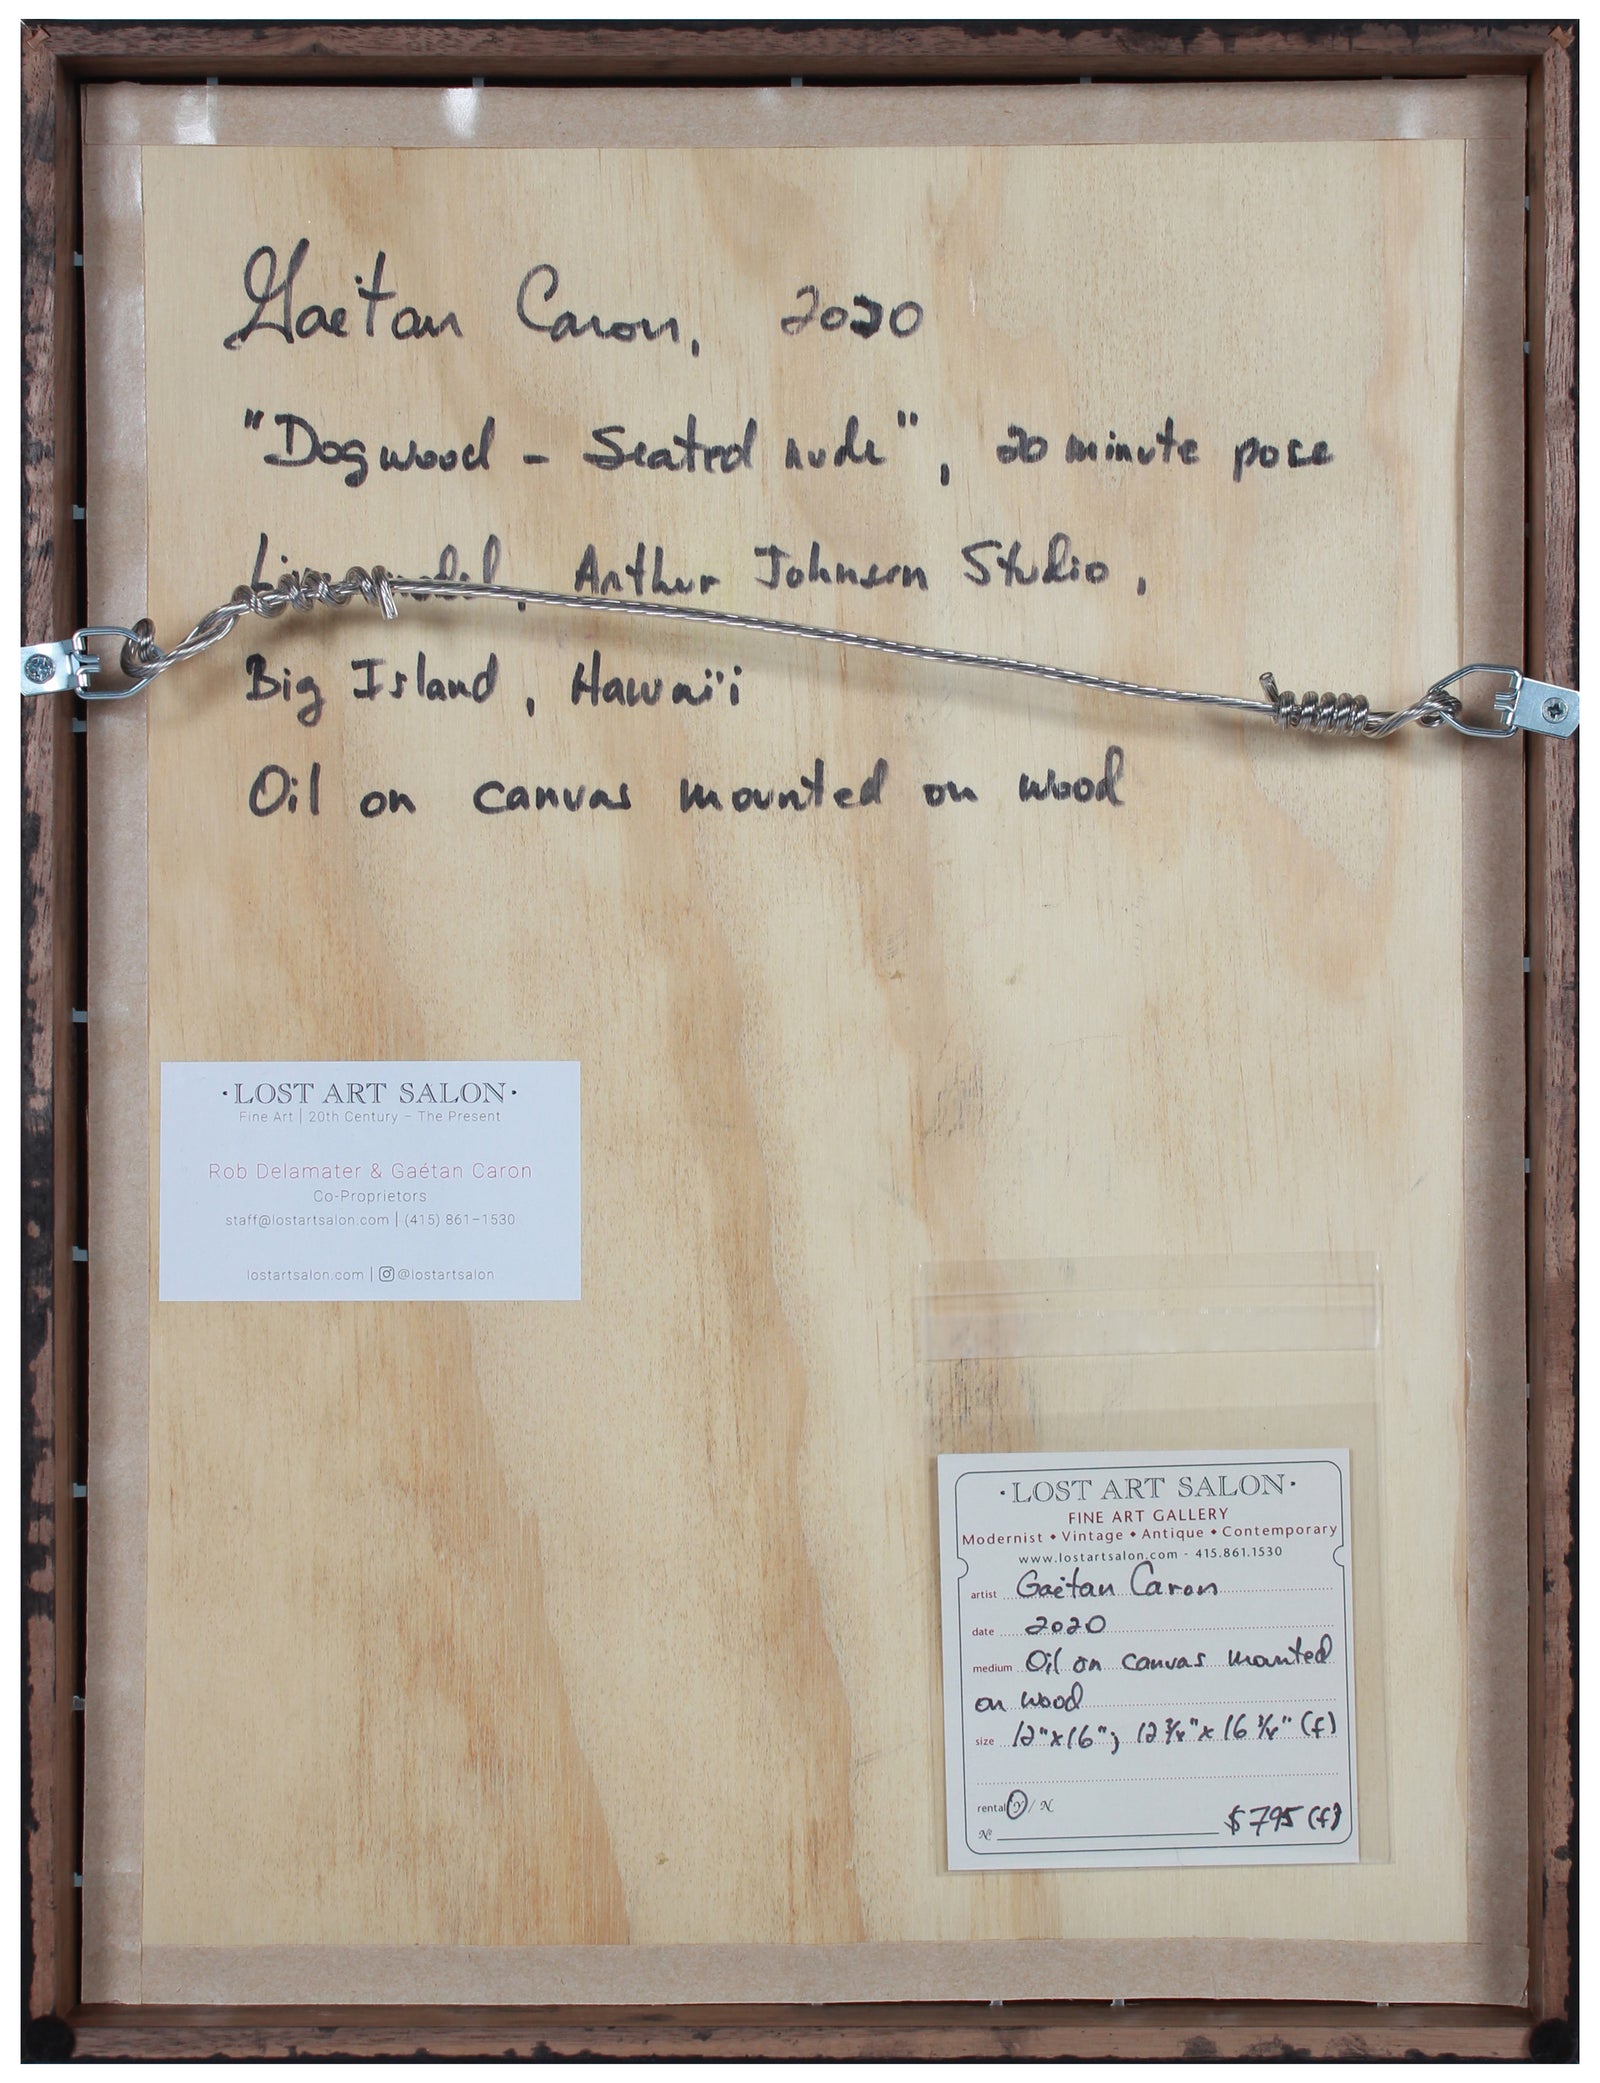 Gaëtan Caron, 2020
"Dogwood - Seated nude", 20 minute pose
Live model, Arthur Johnsen Studio,
Big Island, Hawai'i
Oil on canvas mounted on wood
·LOST ART SALON·
Fine Art | 20th Century – The Present
Rob Delamater & Gaétan Caron
Co-Proprietors
staff@lostartsalon.com | (415) 861-1530
lostartsalon.com | @lostartsalon
·LOST ART SALON·
FINE ART GALLERY
Modernist • Vintage • Antique • Contemporary
www.lostartsalon.com - 415.861.1530
artist Gaëtan Caron
date 2020
medium Oil on canvas mounted
on wood
size 12"x16"; 12 3/4"x 16 3/4" (f)
rental Y / N
Nº $795 (f)